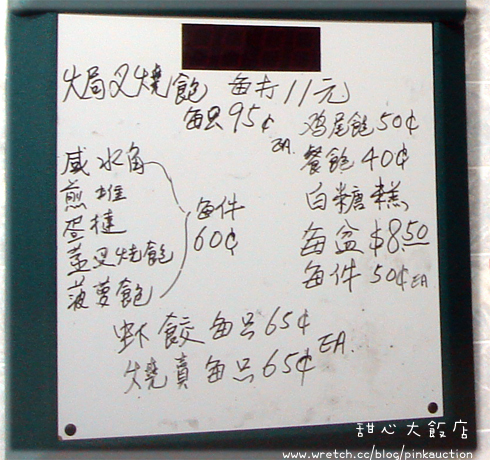 火局叉燒飽 每打11元
每只95¢
EA.
鸡尾飽50¢
餐飽40¢
白糖糕
每盆$8.50
每件 50¢EA
咸水角
煎堆
蛋撻
蒸叉燒飽
菠蘿飽
每件
60¢
虾餃每只65¢
燒賣每只65¢EA.
甜心大飯店
www.wretch.cc/blog/pinkauction